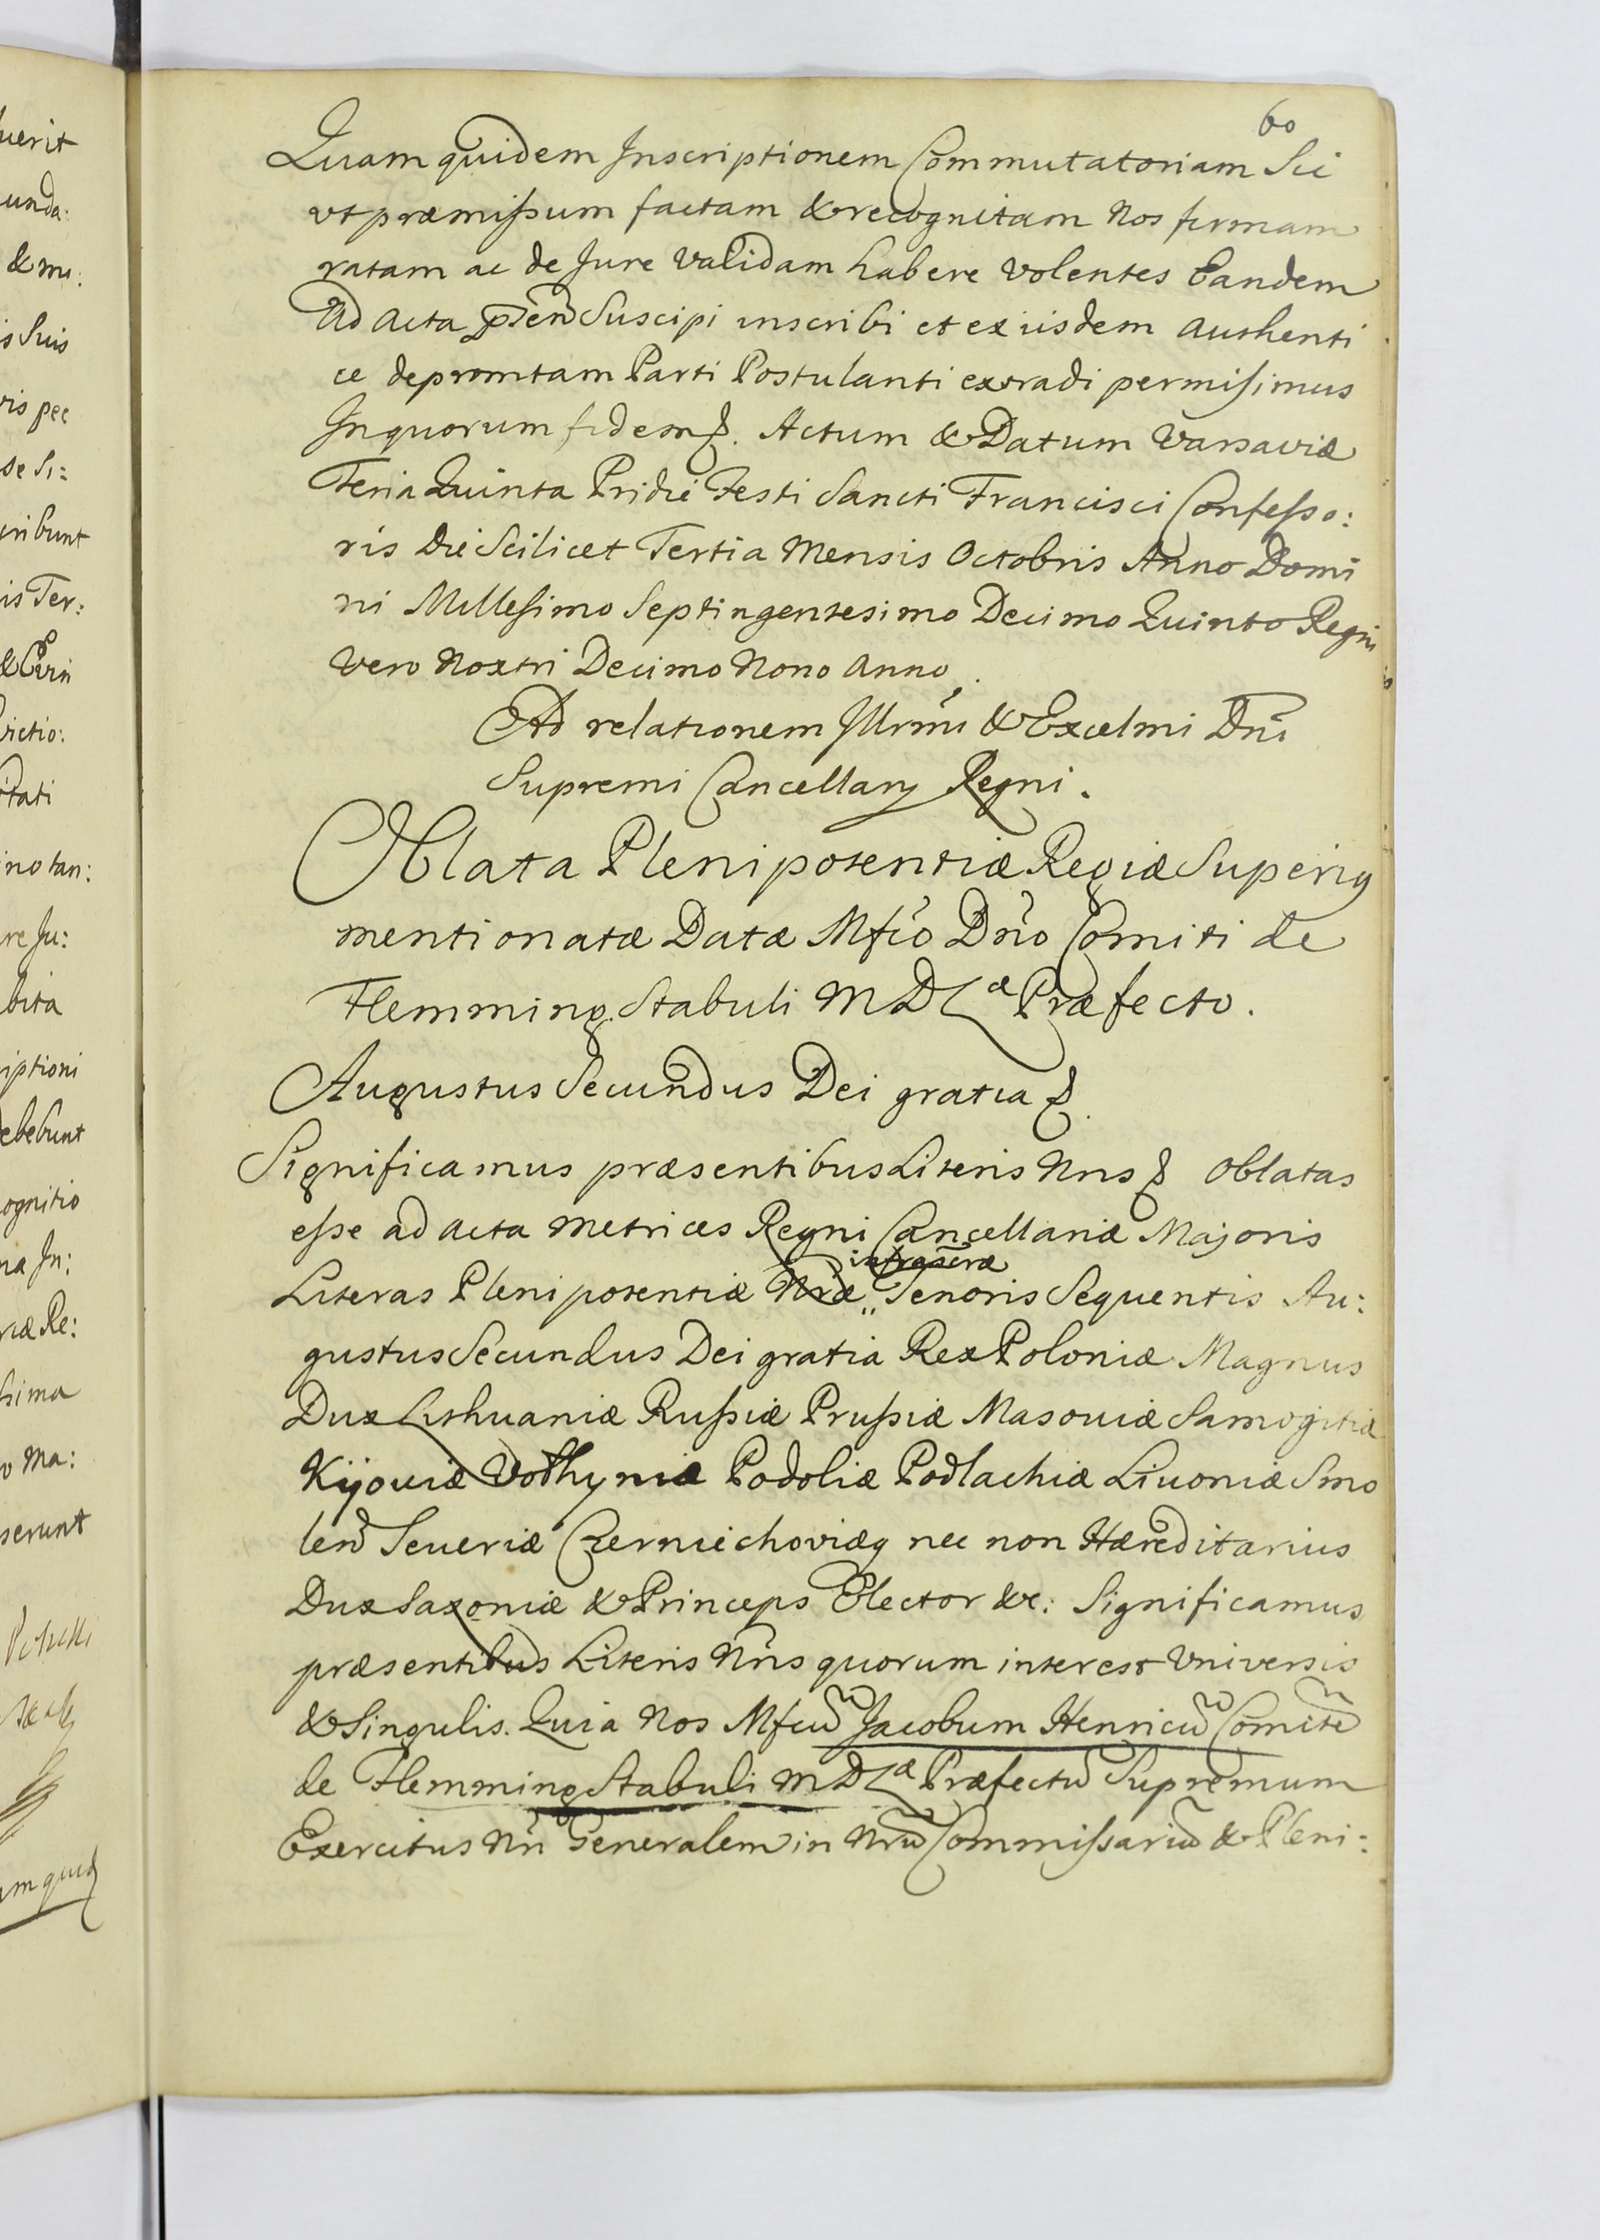 60
Quam quidem Inscriptionem Commutatoriam Sic
vt præmissum factam & recognitam Nos firmam
ratam ac de Jure Validam habere Volentes Eandem
Ad Acta pr̃en̄ Suscipi inscribi et ex iisdem Authenti
ce depromtam Parti Postulanti extradi permisimus
In quorum fidem &. Actum & Datum Varsaviæ
Feria Quinta Pridie Festi Sancti Francisci Confesso:
ris Die Scilicet Tertia Mensis Octobris Anno Domi
ni Millesimo Septingentesimo Decimo Quinto Regni
Vero Nostri Decimo Nono Anno.
Ad relationem Illrm̃i & Excelmi Dñi
Supremi Cancellarij Regni.
Oblata Plenipotentiæ Regiæ Superiq
mentionatæ Datæ Mfcõ Dño Comiti de
Flemming Stabuli M D Læ Præfecto.
Augustus Secundus Dei gratia &.
Significamus præsentibus Literis Nris & Oblatas
esse ad Acta Metrices Regni Cancellariæ Majoris
infrascræ
Literas Plenipotentiæ Nræ „ Tenoris Sequentis Au:
gustus Secundus Dei gratia Rex Poloniæ Magnus
Dux Lithuaniæ Russiæ Prussiæ Masoviæ Samogitiæ
Kijoviæ Volhyniæ Podoliæ Podlachiæ Livoniæ Smo
len̄ Severiæ Czerniechoviæq nec non Hæreditarius
Dux Saxoniæ & Princeps Elector &c: Significamus
præsentibus Literis Nris quorum interest Vniversis
& Singulis. Quia Nos Mfcũ Jacobum Henricũ Comitẽ
de Flemming Stabuli M D Læ Præfectũ Supremum
Exercitus Nri Generalem in Nrũ Commissariũ & Pleni: